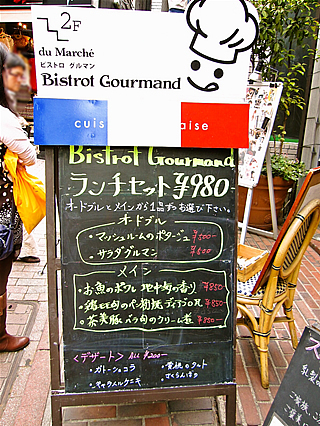 2F
du Marché
ビストロ グルマン
Bistrot Gourmand
cuis aise
Bistrot Gourmand
ランチセット ¥980
オードブルとメインから1品ずつお選び下さい。
オードブル
・マッシュルームのポタージュ ¥500-
・サラダグルマン ¥500
メイン
・お魚のポワレ 地中海の香り ¥850
・鶏もも肉のパン粉焼 ディアブル風 ¥850
・茶美豚バラ肉のクリーム煮 ¥850-
<デザート> ALL ¥200-
・ガトーショコラ
・キャラメルクニャ